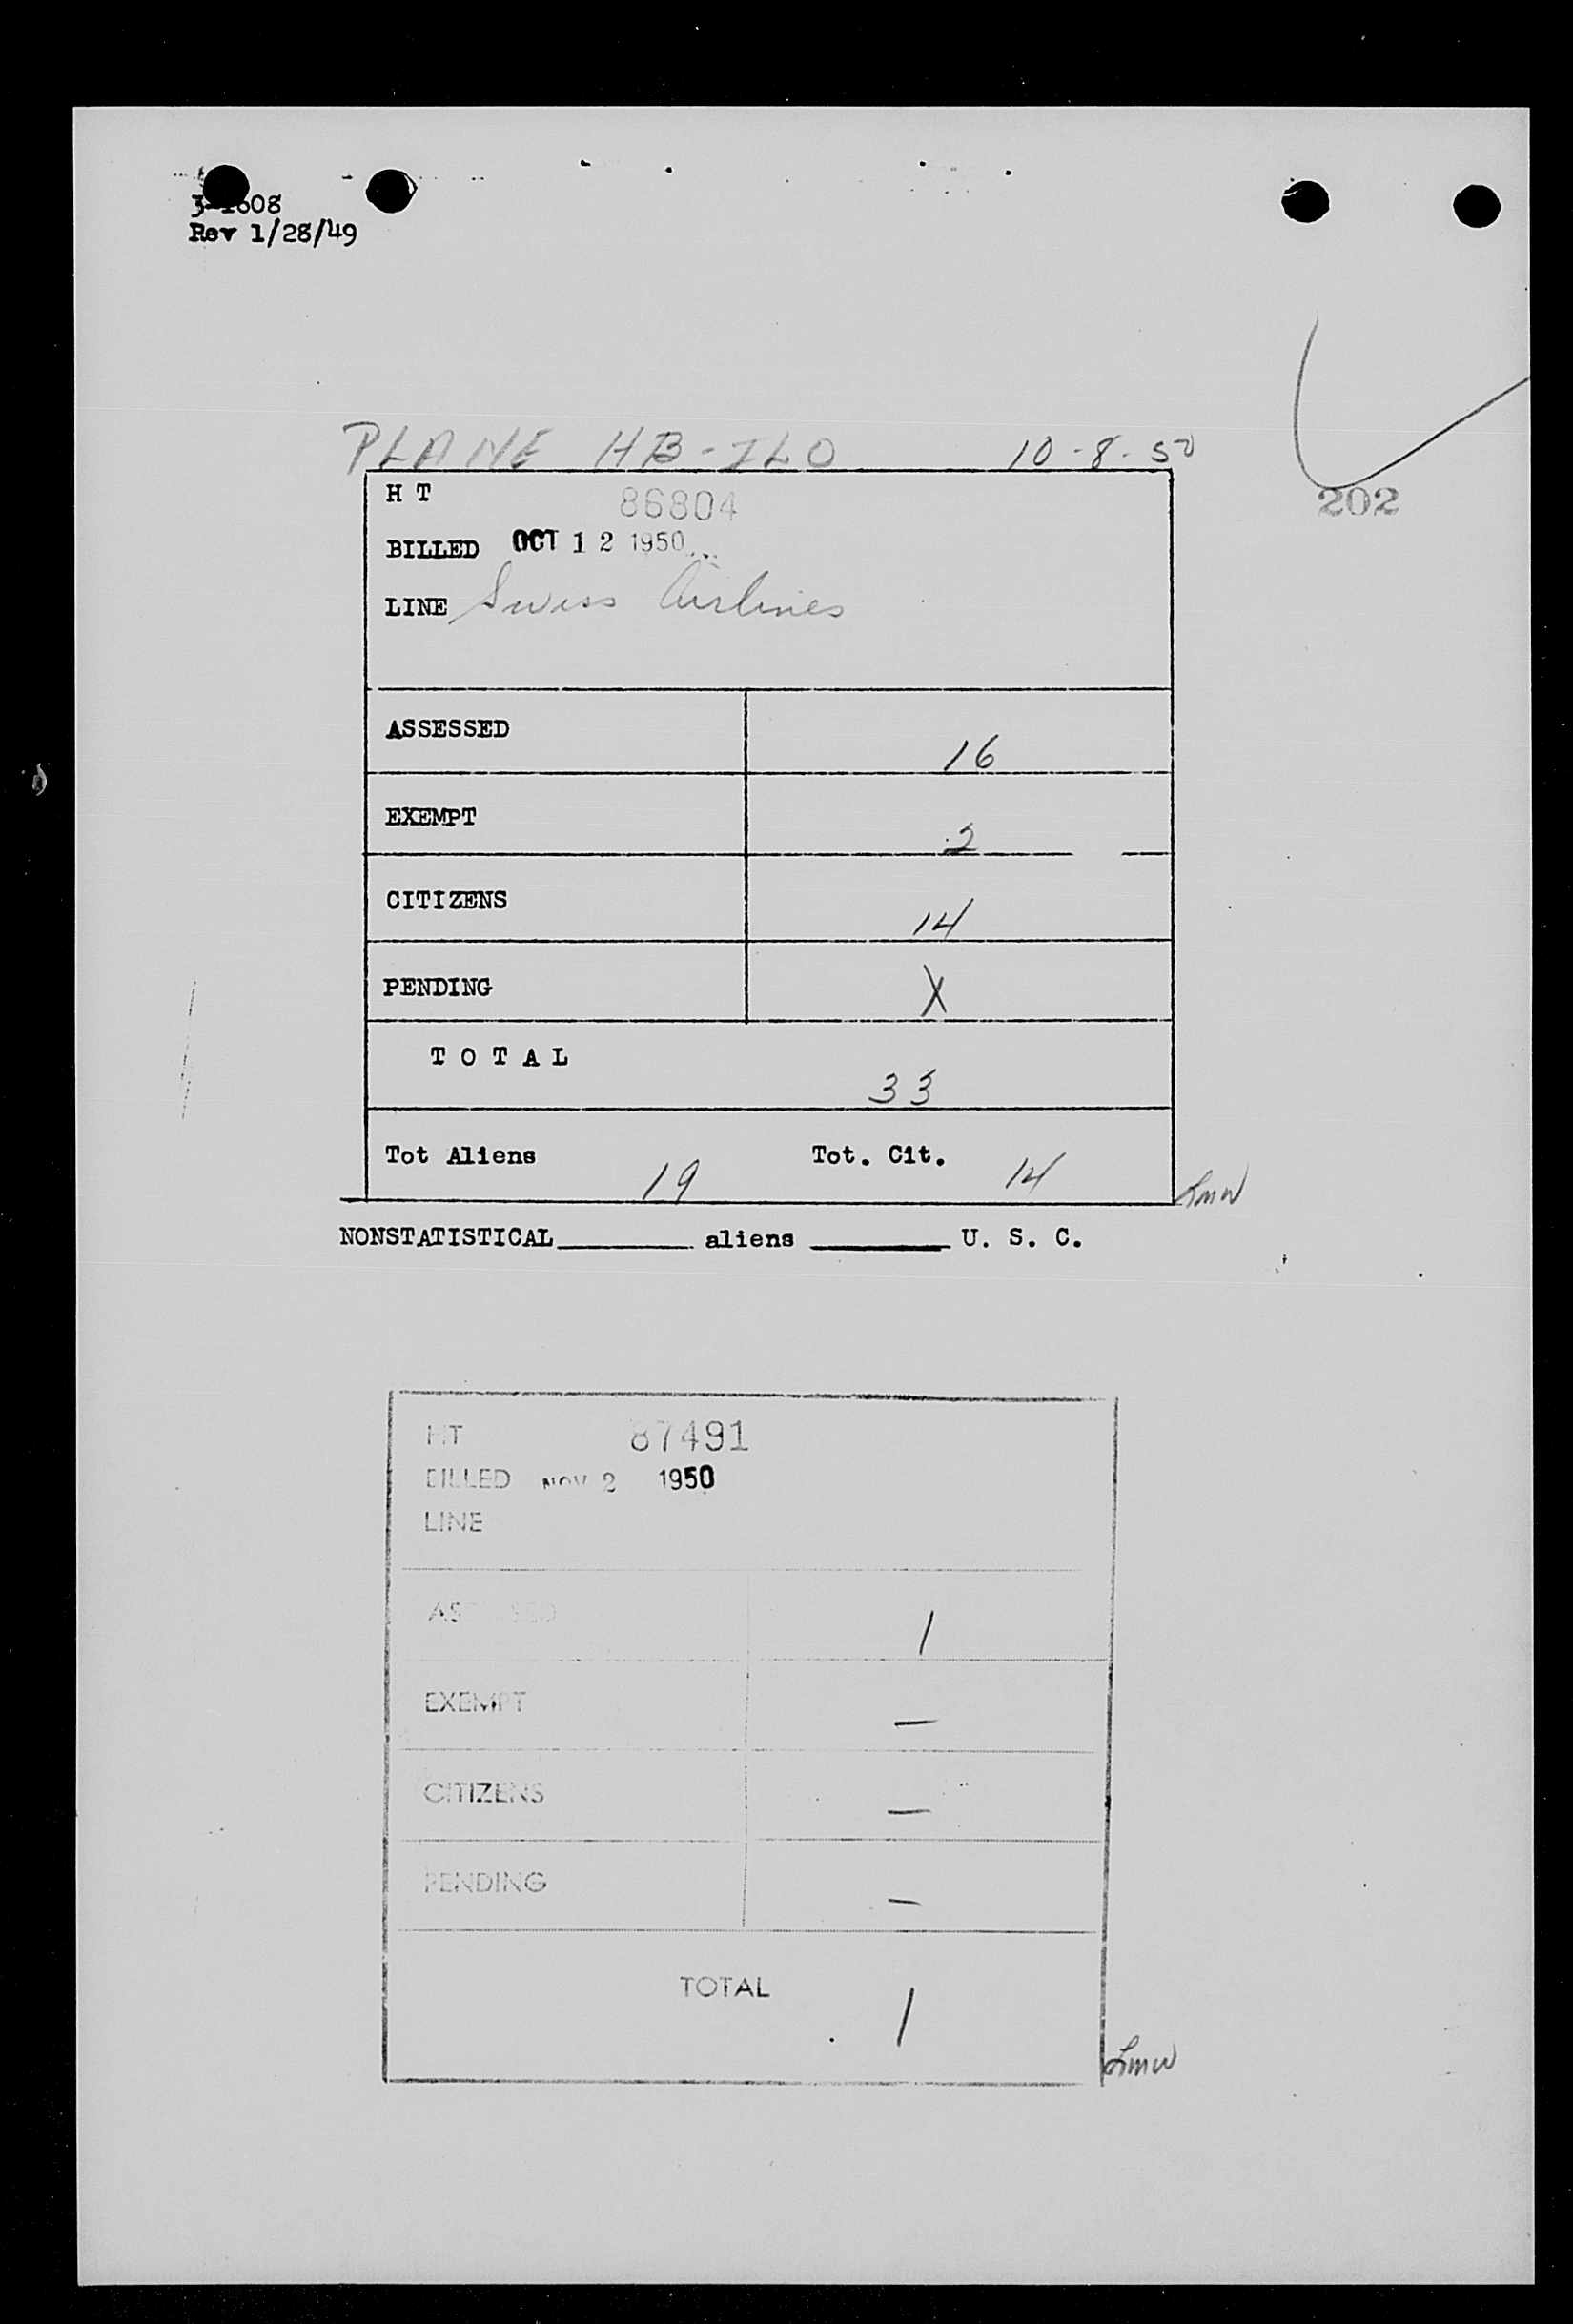 3-1608
Rev 1/28/49
PLANE HB-ILO 10-8-50
202
H T 86804
BILLED OCT 12 1950
LINE Swiss Airlines
ASSESSED 16
EXEMPT 2
CITIZENS 14
PENDING X
TOTAL 33
Tot Aliens 19 Tot. Cit. 14
NONSTATISTICAL aliens U. S. C.
HT 87491
BILLED NOV 2 1950
LINE
ASSESSED 1
EXEMPT —
CITIZENS —
PENDING —
TOTAL 1